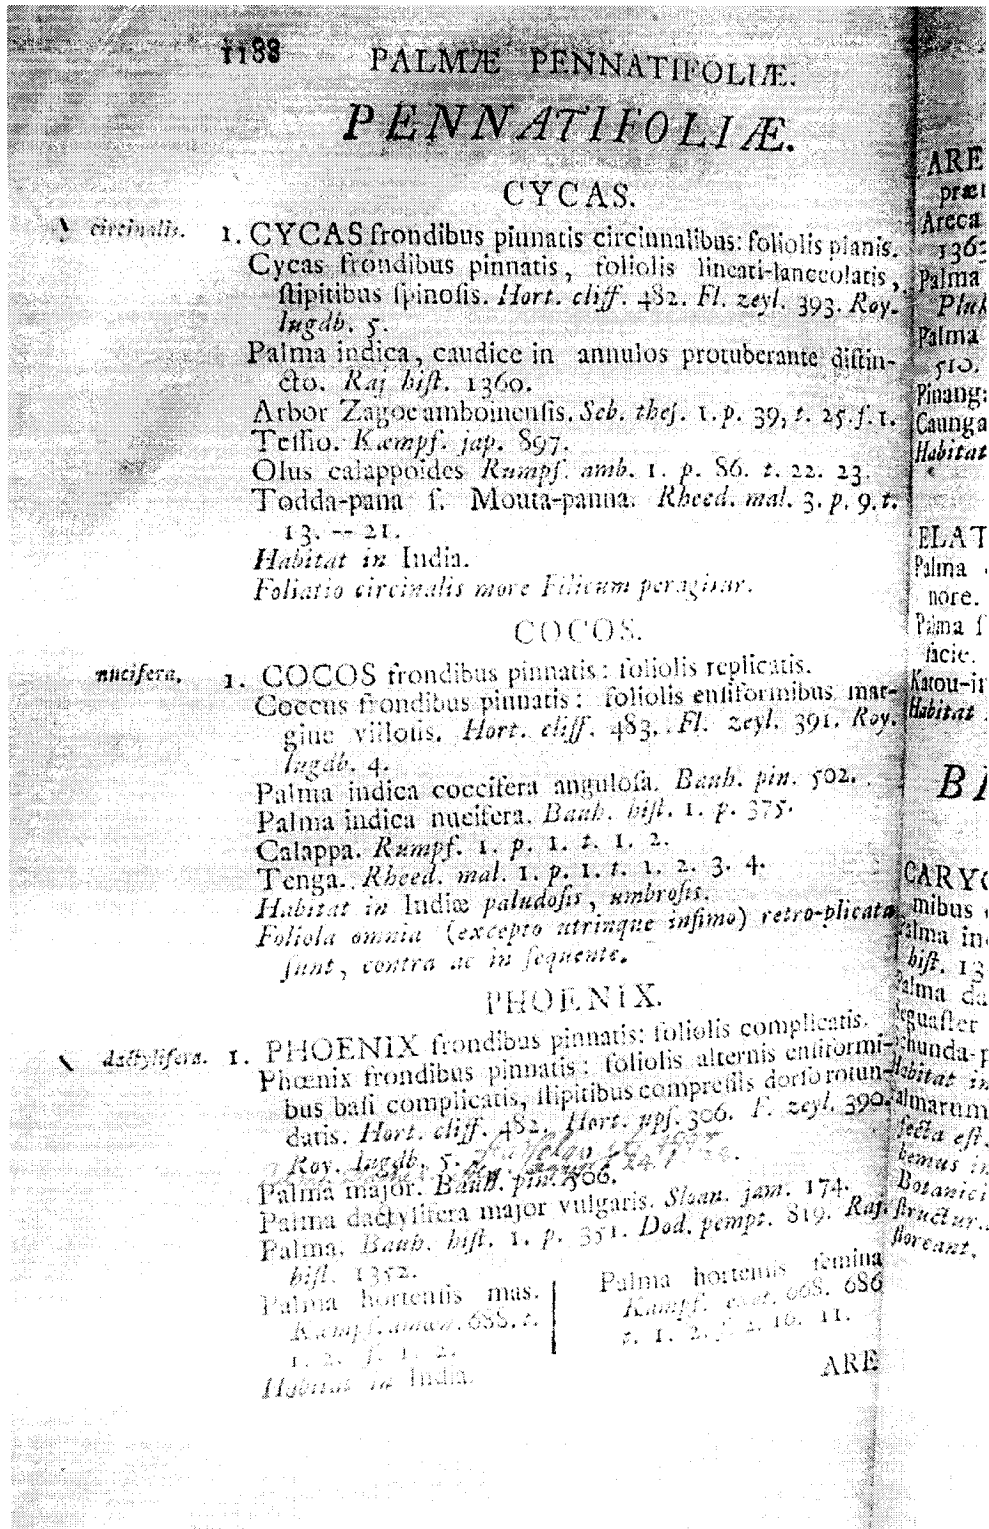 1188 PALMÆ PENNATIFOLIÆ.
PENNATIFOLIÆ.
CYCAS.
circinalis. 1. CYCAS frondibus pinnatis circinnalibus: foliolis planis.
Cycas frondibus pinnatis, foliolis lineari-lanceolatis,
ſtipitibus ſpinoſis. Hort. cliff. 482. Fl. zeyl. 393. Roy.
lugdb. 5.
Palma indica, caudice in annulos protuberante diſtin-
cto. Raj hiſt. 1360.
Arbor Zagoe amboinenſis. Seb. theſ. 1. p. 39, t. 25. f. 1.
Teſſio. Kæmpf. jap. 897.
Olus calappoides Rumpf. amb. 1. p. 86. t. 22. 23.
Todda-pana ſ. Mouta-panna. Rheed. mal. 3. p. 9. t.
13. -- 21.
Habitat in India.
Foliatio circinalis more Filicum peragitur.
COCOS.
nucifera. 1. COCOS frondibus pinnatis: foliolis replicatis.
Coccus frondibus pinnatis: foliolis enſiformibus mar-
gine villoſis. Hort. cliff. 483. Fl. zeyl. 391. Roy.
lugdb. 4.
Palma indica coccifera anguloſa. Bauh. pin. 502.
Palma indica nucifera. Bauh. hiſt. 1. p. 375.
Calappa. Rumpf. 1. p. 1. t. 1. 2.
Tenga. Rheed. mal. 1. p. 1. t. 1. 2. 3. 4.
Habitat in Indiæ paludoſis, umbroſis.
Foliola omnia (excepto utrinque infimo) retro-plicata
ſunt, contra ac in ſequente.
PHOENIX.
dactylifera. 1. PHOENIX frondibus pinnatis: foliolis complicatis.
Phœnix frondibus pinnatis: foliolis alternis enſiformi-
bus baſi complicatis, ſtipitibus compreſſis dorſo rotun-
datis. Hort. cliff. 482. Hort. upſ. 306. F. zeyl. 390.
Roy. lugdb. 5.
Palma major. Bauh. pin. 506.
Palma dactylifera major vulgaris. Sloan. jam. 174.
Palma. Bauh. hiſt. 1. p. 351. Dod. pempt. 819. Raj.
hiſt. 1352.
Palma hortenſis mas.
Kæmpf. amœn. 688. t.
1. 2. f. 1. 2.
Palma hortenſis femina
Kæmpf. exot. 668. 686
t. 1. 2. f. 2. 10. 11.
Habitat in India.
ARE
ARE
præm
Areca
1363
Palma
Pluk
Palma
510.
Pinang
Caunga
Habitat
ELAT
Palma
nore.
Palma ſ
facie.
Katou-in
Habitat
CARYO
mibus
Palma in
hiſt. 13
Palma da
Habitat in
ſecta eſt.
bemus in
Botanici
ſtructur
floreant.